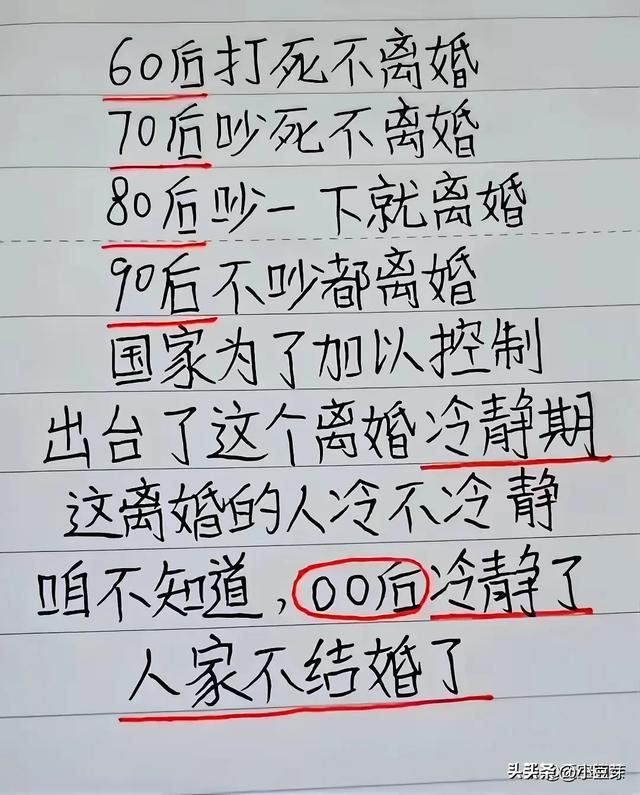 60后打死不离婚
70后吵死不离婚
80后吵一下就离婚
90后不吵都离婚
国家为了加以控制
出台了这个离婚冷静期
这离婚的人冷不冷静
咱不知道，00后冷静了
人家不结婚了
头条@小豆芽